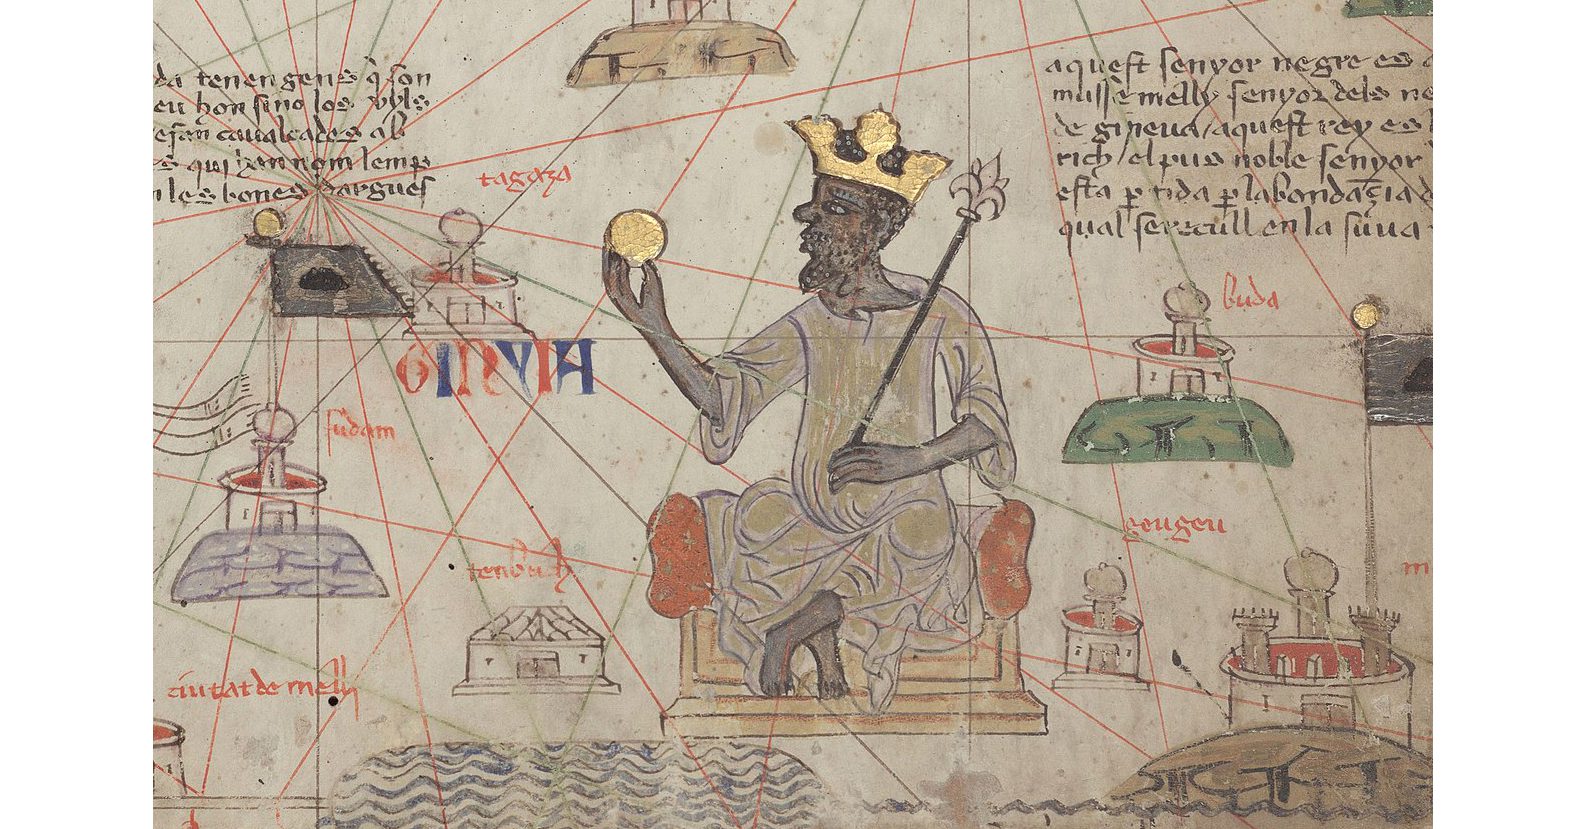 da tenen gens q̄ son
hon sino los uyls
e fan caualcades ab
qui han nom lemp
les bones dargues
tagaza
GINYIA
sudam
tenbuch
ciutat de melly
aquest senyor negre es
musse melly senyor dels ne
de gineua / aquest rey es
rich / el pus noble senyor
esta ꝑtida ꝑ labondançia d
qual se recull en la suua
buda
geugeu
m